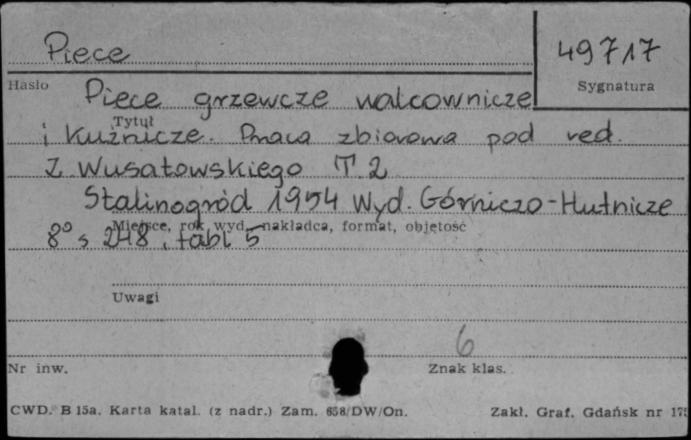 Piece
49717
Hasło
Sygnatura
Piece grzewcze walcownicze
Tytuł
i kuźnicze. Praca zbiorowa pod red.
Z. Wusatowskiego T. 2
Stalinogród 1954 Wyd. Górniczo-Hutnicze
Miejsce, rok, wyd., nakładca, format, objętość
8° s 248, tabl 5
Uwagi
6
Nr inw.
Znak klas.
CWD. B 15a. Karta katal. (z nadr.) Zam. 658/DW/On.
Zakł. Graf. Gdańsk nr